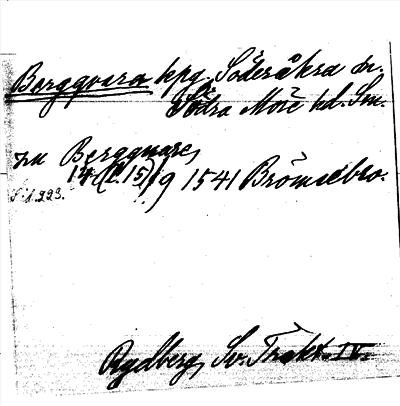 Bergqvara kpg. Söderåkra sn.
Södra Möre hd. Sm.
zu Bergquare
14 (l. 15)/9 1541 Brömsebro.
S. 1. 223.
Rydberg, Sv. Trakt. IV.